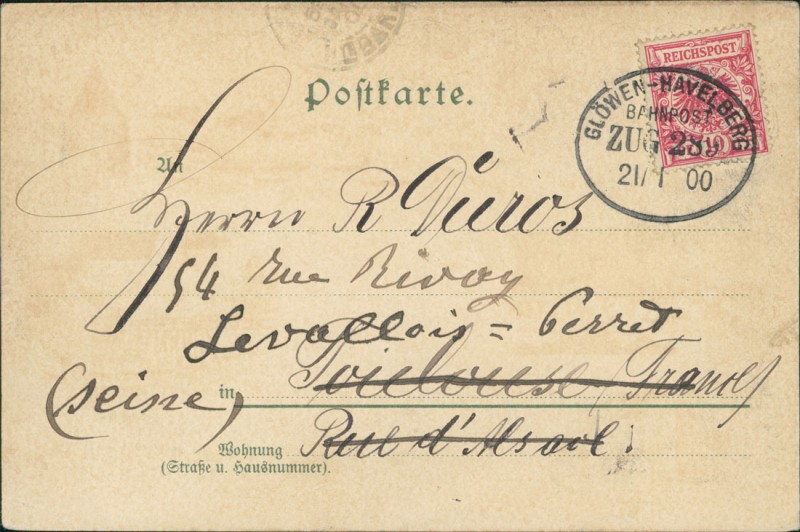 Postkarte.
REICHSPOST
10
GLÖWEN-HAVELBERG
BAHNPOST
ZUG 289
21/1 00
An
Herrn R Duros
54 Rue Rivay
Levallois=Perret
Toulouse (France)
(seine)
in
Rue d'Alsace.
Wohnung
(Straße u. Hausnummer).